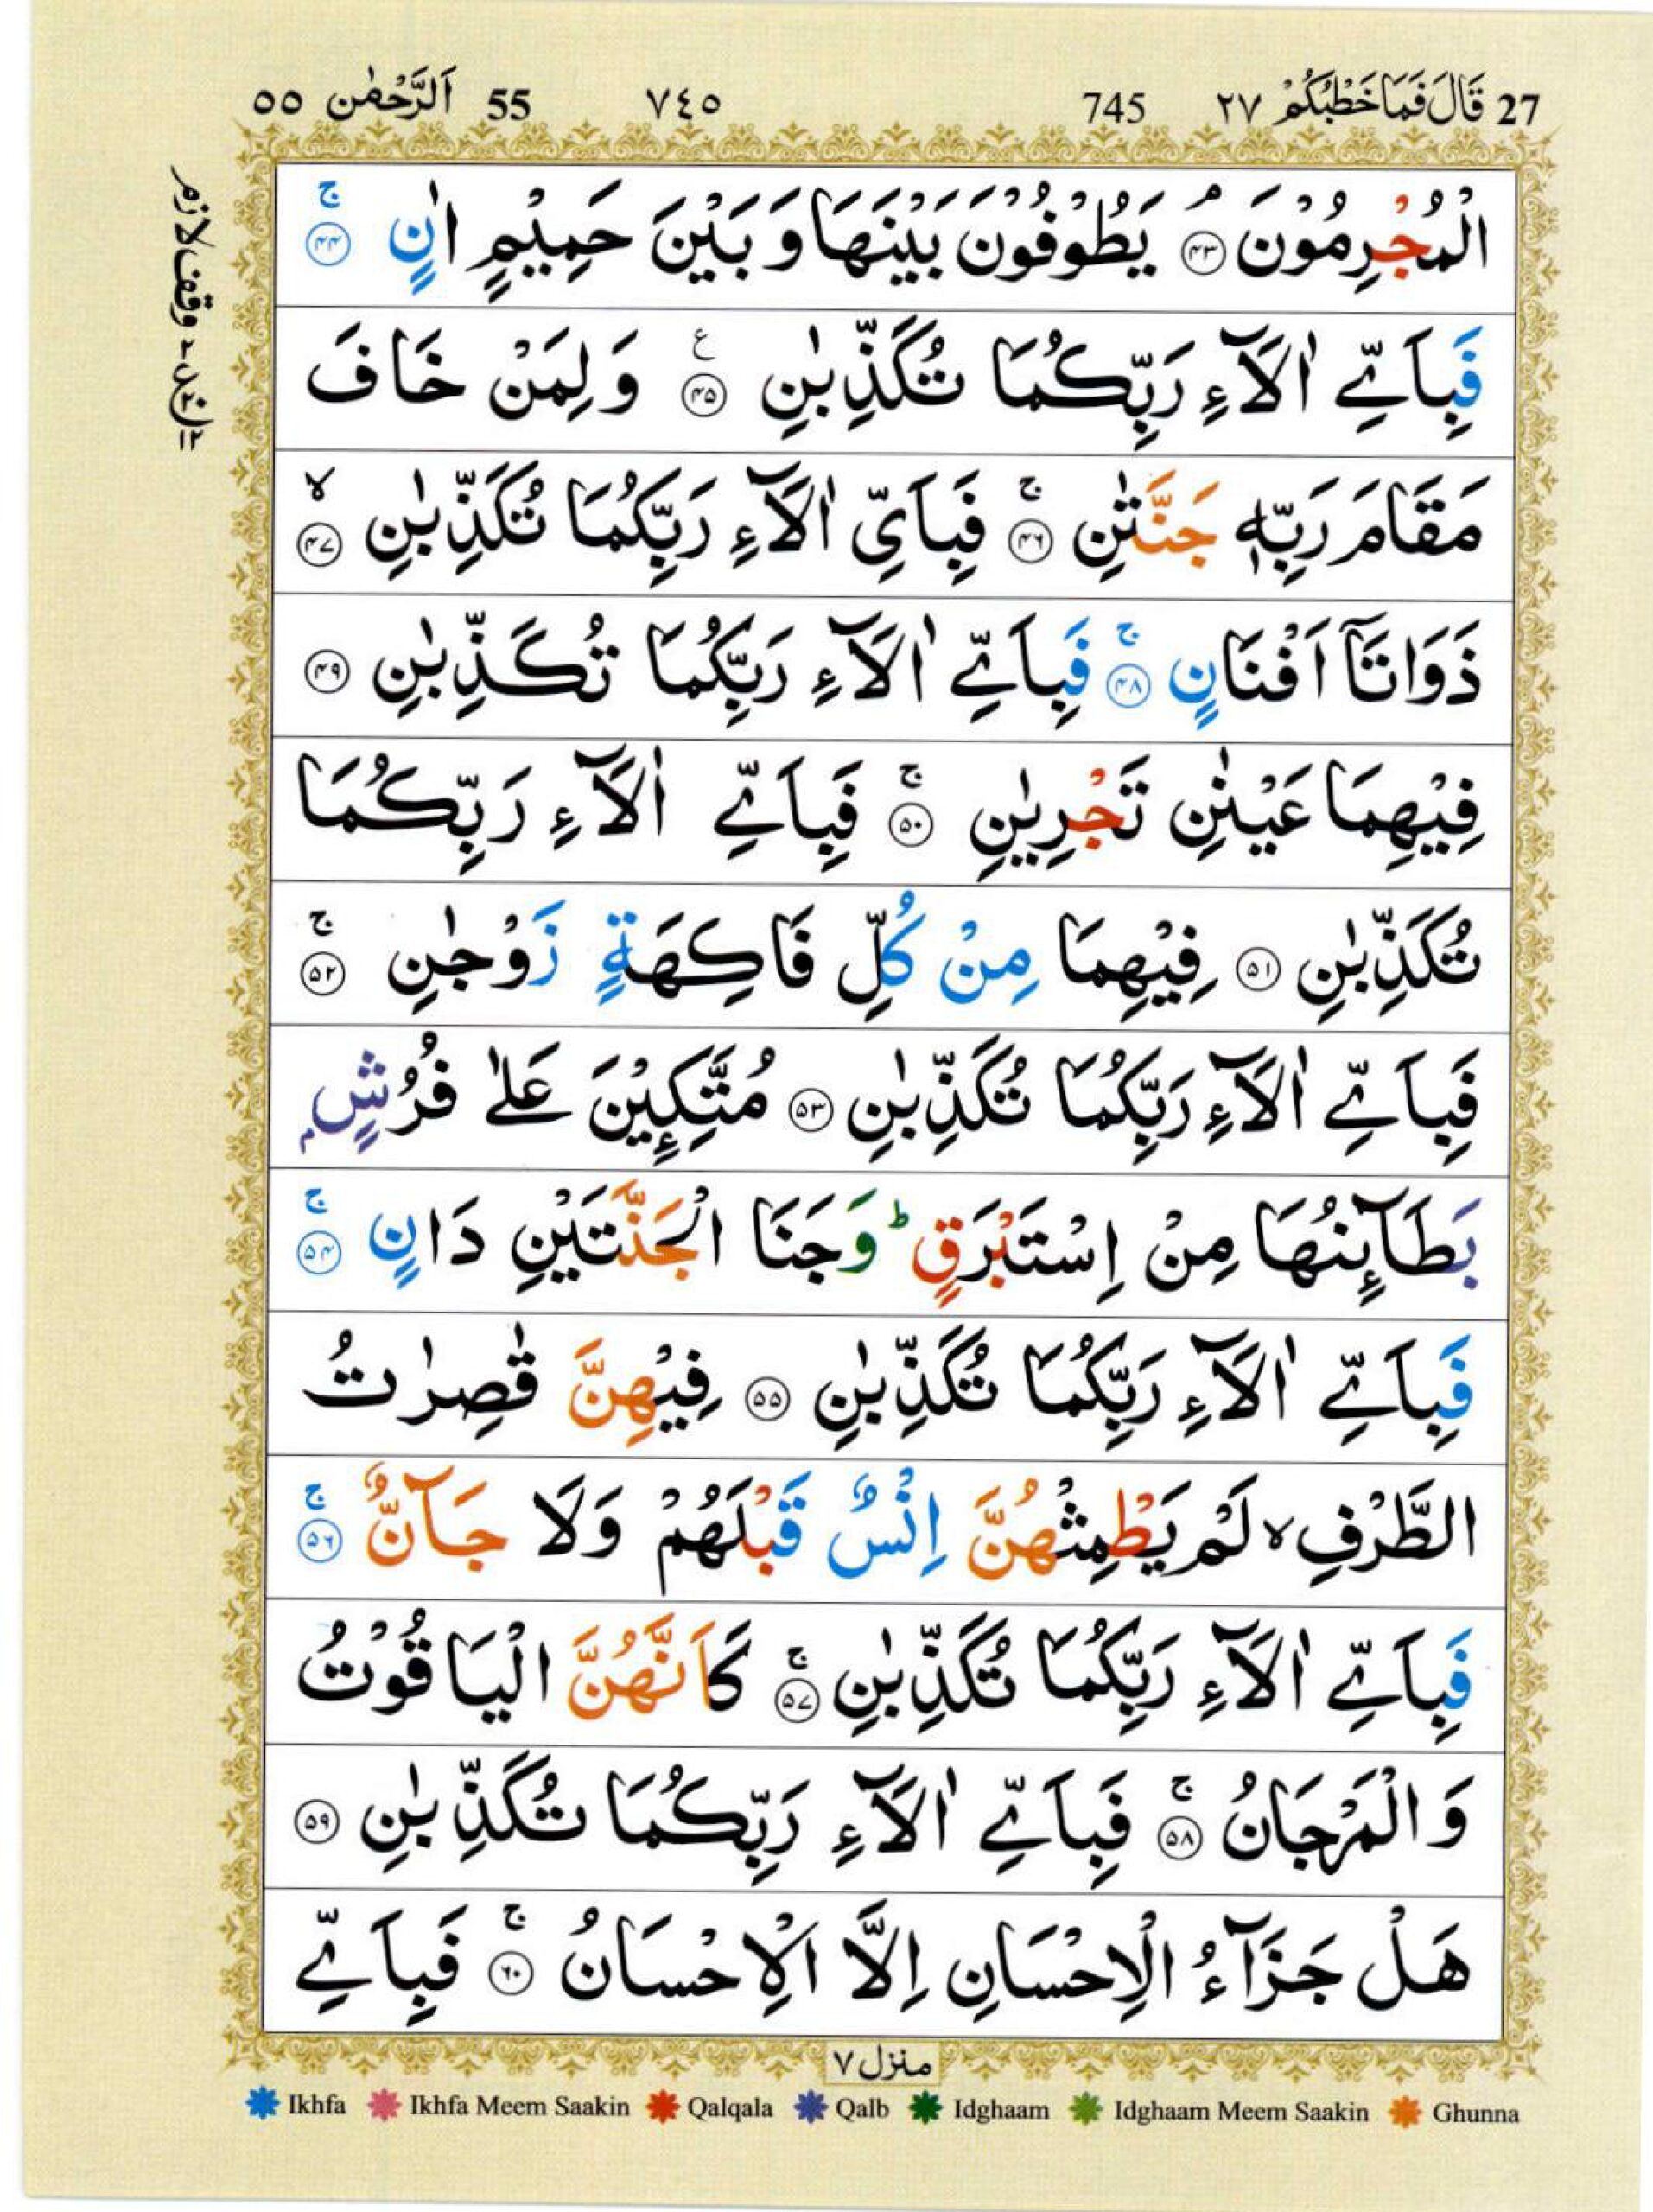 27 قَالَ فَمَا خَطْبُكُمْ ٢٧ 745 ٧٤٥ 55 اَلرَّحْمٰن ٥٥
الْمُجْرِمُوْنَ ۘ‏ ﴿۴۳﴾ يَطُوْفُوْنَ بَيْنَهَا وَ بَيْنَ حَمِيْمٍ اٰنٍ ۚ‏ ﴿۴۴﴾
فَبِاَيِّ اٰلَآءِ رَبِّكُمَا تُكَذِّبٰنِ ﴿۴۵﴾ ع وَ لِمَنْ خَافَ
مَقَامَ رَبِّهٖ جَنَّتٰنِ ۚ‏ ﴿۴۶﴾ فَبِاَيِّ اٰلَآءِ رَبِّكُمَا تُكَذِّبٰنِ ۙ‏ ﴿۴۷﴾
ذَوَاتَاۤ اَفْنَانٍ ۚ‏ ﴿۴۸﴾ فَبِاَيِّ اٰلَآءِ رَبِّكُمَا تُكَذِّبٰنِ ﴿۴۹﴾
فِيْهِمَا عَيْنٰنِ تَجْرِيٰنِ ۚ‏ ﴿۵۰﴾ فَبِاَيِّ اٰلَآءِ رَبِّكُمَا
تُكَذِّبٰنِ ﴿۵۱﴾ فِيْهِمَا مِنْ كُلِّ فَاكِهَةٍ زَوْجٰنِ ۚ‏ ﴿۵۲﴾
فَبِاَيِّ اٰلَآءِ رَبِّكُمَا تُكَذِّبٰنِ ﴿۵۳﴾ مُتَّكِـِٕيْنَ عَلٰى فُرُشٍۭ
بَطَآئِنُهَا مِنْ اِسْتَبْرَقٍ ؕ وَ جَنَا الْجَنَّتَيْنِ دَانٍ ۚ‏ ﴿۵۴﴾
فَبِاَيِّ اٰلَآءِ رَبِّكُمَا تُكَذِّبٰنِ ﴿۵۵﴾ فِيْهِنَّ قٰصِرٰتُ
الطَّرْفِ ۙ لَمْ يَطْمِثْهُنَّ اِنْسٌ قَبْلَهُمْ وَلَا جَآنٌّ ۚ‏ ﴿۵۶﴾
فَبِاَيِّ اٰلَآءِ رَبِّكُمَا تُكَذِّبٰنِ ۚ‏ ﴿۵۷﴾ كَاَنَّهُنَّ الْيَاقُوْتُ
وَ الْمَرْجَانُ ۚ‏ ﴿۵۸﴾ فَبِاَيِّ اٰلَآءِ رَبِّكُمَا تُكَذِّبٰنِ ﴿۵۹﴾
هَلْ جَزَآءُ الْاِحْسَانِ اِلَّا الْاِحْسَانُ ۚ‏ ﴿۶۰﴾ فَبِاَيِّ
منزل ٧
Ikhfa Ikhfa Meem Saakin Qalqala Qalb Idghaam Idghaam Meem Saakin Ghunna